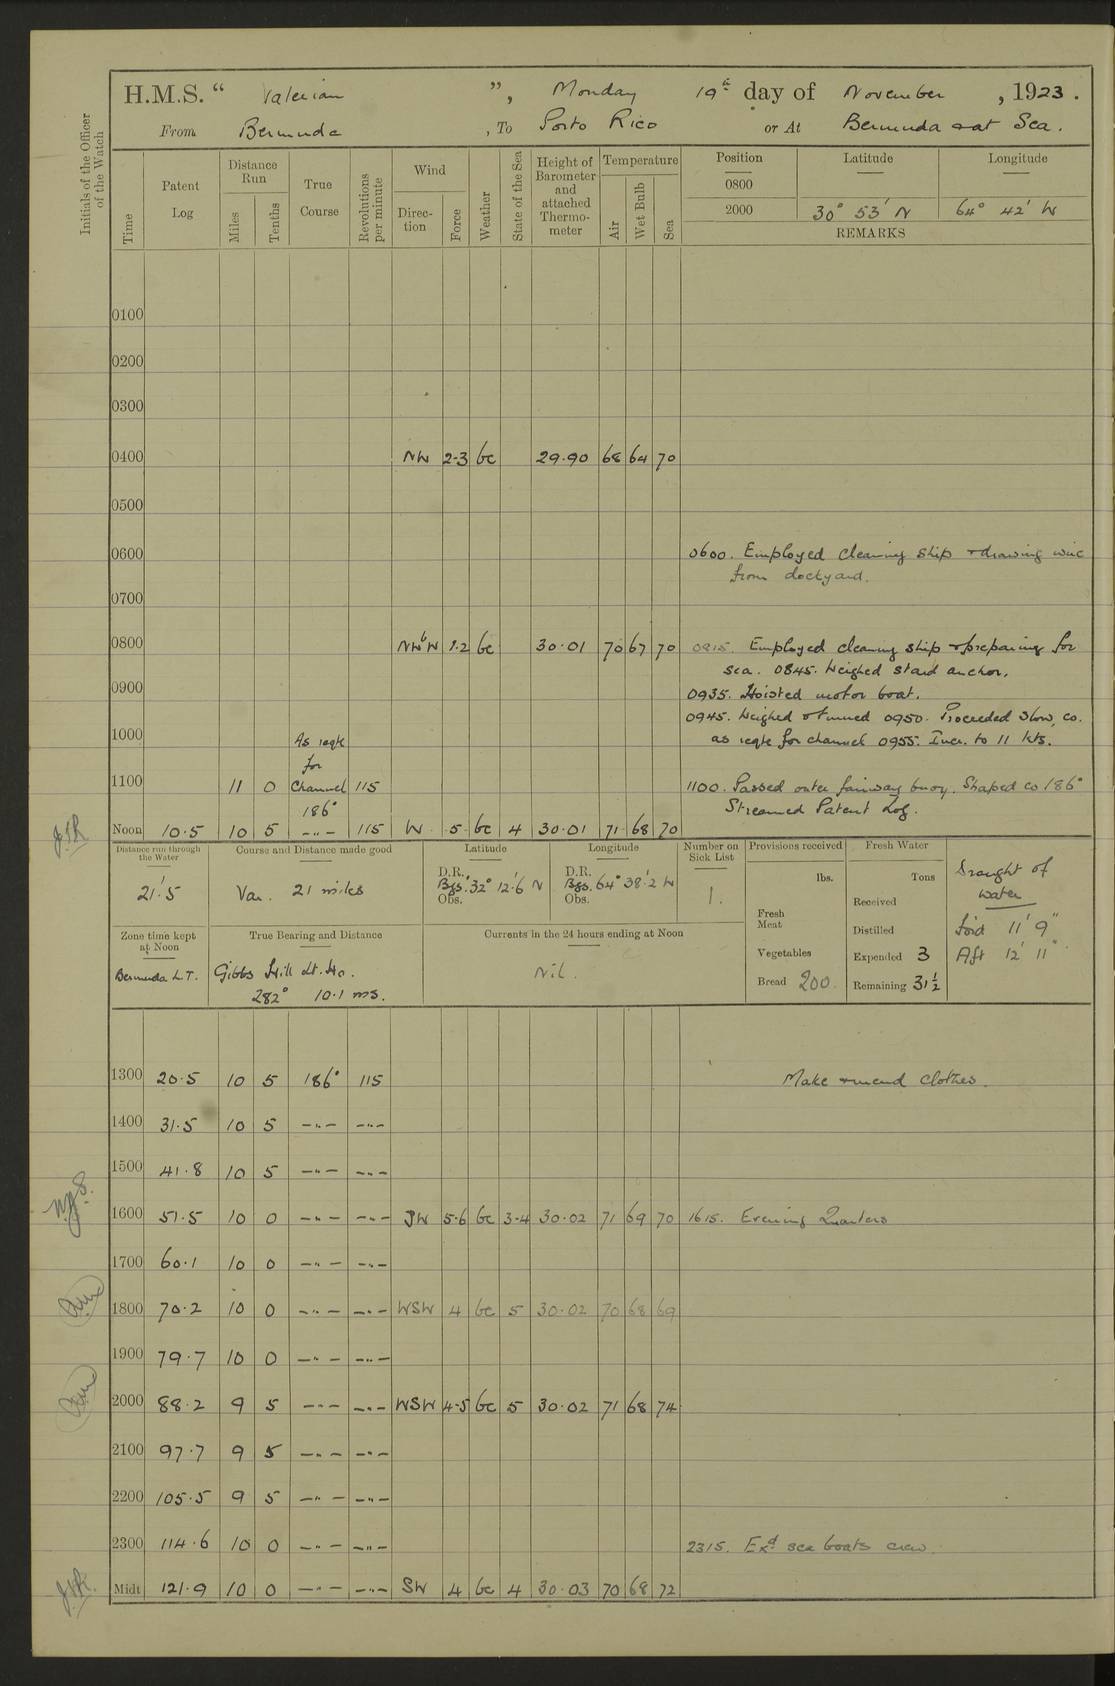 H.M.S. “ Valerian ”, Monday 19th day of November, 1923.
From Bermuda, To Porto Rico or At Bermuda & at Sea.
Initials of the Officer of the Watch
Time
Patent Log
Distance Run
Miles
Tenths
True Course
Revolutions per minute
Wind
Direction
Force
Weather
State of the Sea
Height of Barometer and attached Thermometer
Temperature
Air
Wet Bulb
Sea
Position Latitude Longitude
0800
2000 30° 53' N 64° 42' W
REMARKS
0100
0200
0300
0400 NW 2-3 bc 29.90 68 64 70
0500
0600 0600. Employed cleaning ship & drawing wire
from dockyard.
0700
0800 NWbW 1.2 bc 30.01 70 67 70 0815. Employed cleaning ship & preparing for
sea. 0845. Weighed starbd anchor.
0900 0935. Hoisted motor boat.
0945. Weighed & turned 0950. Proceeded slow, co.
1000 As reqte as reqte for channel 0955. Incr. to 11 kts.
for
1100 11 0 Channel 115 1100. Passed outer fairway buoy. Shaped co 186°
186° Streamed Patent Log.
Noon 10.5 10 5 -"- 115 W 5 bc 4 30.01 71 68 70
Distance run through the Water
21'.5
Course and Distance made good
Var. 21 miles
Latitude
D.R. Bgs. Obs. 32° 12'.6 N
Longitude
D.R. Bgs. Obs. 64° 38'.2 W
Number on Sick List
1.
Provisions received
lbs.
Fresh Meat
Vegetables
Bread 200
Fresh Water
Tons
Received
Distilled
Expended 3
Remaining 31½
Draught of
water
Ford 11' 9"
Aft 12' 11"
Zone time kept at Noon
Bermuda L.T.
True Bearing and Distance
Gibbs Hill Lt. Ho.
282° 10.1 ms.
Currents in the 24 hours ending at Noon
Nil.
1300 20.5 10 5 186° 115 Make & mend clothes.
1400 31.5 10 5 -"- -"-
1500 41.8 10 5 -"- -"-
1600 51.5 10 0 -"- -"- SW 5-6 bc 3-4 30.02 71 69 70 1615. Evening Quarters
1700 60.1 10 0 -"- -"-
1800 70.2 10 0 -"- -"- WSW 4 bc 5 30.02 70 68 69
1900 79.7 10 0 -"- -"-
2000 88.2 9 5 -"- -"- WSW 4-5 bc 5 30.02 71 68 74
2100 97.7 9 5 -"- -"-
2200 105.5 9 5 -"- -"-
2300 114.6 10 0 -"- -"- 2315. Exd sea boats crew.
Midt 121.9 10 0 -"- -"- SW 4 bc 4 30.03 70 68 72